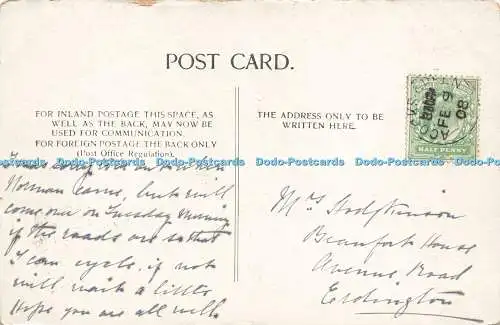 POST CARD.
FOR INLAND POSTAGE THIS SPACE, AS
WELL AS THE BACK, MAY NOW BE
USED FOR COMMUNICATION.
FOR FOREIGN POSTAGE THE BACK ONLY
(Post Office Regulation).
THE ADDRESS ONLY TO BE
WRITTEN HERE.
FE 9
08
HALF PENNY
Dodo-Postcards Dodo-Postcards Dodo-Postcards Dodo-Postcards Dodo-Postcards
I was out when
Norman came, but will
come over on Tuesday
if the roads are so that
I can cycle. if not
will wait a little
Hope you are all well
Mrs Hodgkinson
Beaufort House
Avenue Road
Erdington